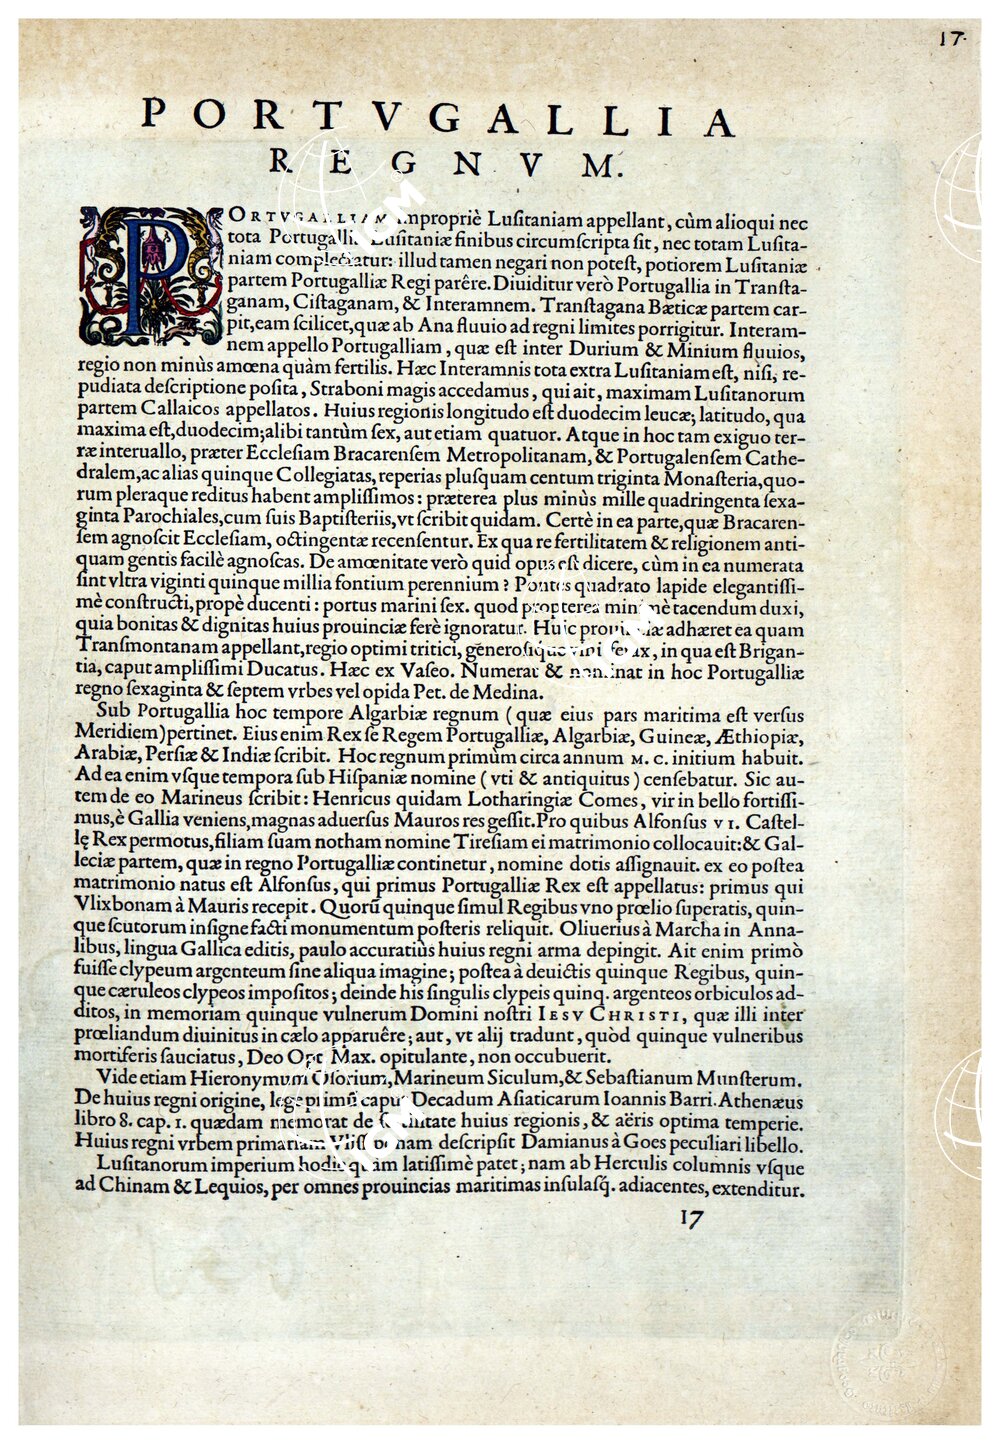 17.
PORTVGALLIA
REGNVM.
PORTVGALLIAM impropriè Luſitaniam appellant, cùm alioqui nec
tota Portugallia Luſitaniæ finibus circumſcripta ſit, nec totam Luſita-
niam complectatur: illud tamen negari non poteſt, potiorem Luſitaniæ
partem Portugalliæ Regi parêre. Diuiditur verò Portugallia in Tranſta-
ganam, Ciſtaganam, & Interamnem. Tranſtagana Bæticæ partem car-
pit, eam ſcilicet, quæ ab Ana fluuio ad regni limites porrigitur. Interam-
nem appello Portugalliam, quæ eſt inter Durium & Minium fluuios,
regio non minùs amœna quàm fertilis. Hæc Interamnis tota extra Luſitaniam eſt, niſi, re-
pudiata deſcriptione poſita, Straboni magis accedamus, qui ait, maximam Luſitanorum
partem Callaicos appellatos. Huius regionis longitudo eſt duodecim leucæ; latitudo, qua
maxima eſt, duodecim; alibi tantùm ſex, aut etiam quatuor. Atque in hoc tam exiguo ter-
ræ interuallo, præter Eccleſiam Bracarenſem Metropolitanam, & Portugalenſem Cathe-
dralem, ac alias quinque Collegiatas, reperias pluſquam centum triginta Monaſteria, quo-
rum pleraque reditus habent ampliſſimos: præterea plus minùs mille quadringenta ſexa-
ginta Parochiales, cum ſuis Baptiſteriis, vt ſcribit quidam. Certè in ea parte, quæ Bracaren-
ſem agnoſcit Eccleſiam, octingentæ recenſentur. Ex qua re fertilitatem & religionem anti-
quam gentis facilè agnoſcas. De amœnitate verò quid opus eſt dicere, cùm in ea numerata
ſint vltra viginti quinque millia fontium perennium? Pontes quadrato lapide elegantiſſi-
mè conſtructi, propè ducenti: portus marini ſex. quod propterea minimè tacendum duxi,
quia bonitas & dignitas huius prouinciæ ferè ignoratur. Huic prouinciæ adhæret ea quam
Tranſmontanam appellant, regio optimi tritici, generoſique vini ferax, in qua eſt Brigan-
tia, caput ampliſſimi Ducatus. Hæc ex Vaſeo. Numerat & nominat in hoc Portugalliæ
regno ſexaginta & ſeptem vrbes vel opida Pet. de Medina.
Sub Portugallia hoc tempore Algarbiæ regnum (quæ eius pars maritima eſt verſus
Meridiem) pertinet. Eius enim Rex ſe Regem Portugalliæ, Algarbiæ, Guineæ, Æthiopiæ,
Arabiæ, Perſiæ & Indiæ ſcribit. Hoc regnum primùm circa annum M. C. initium habuit.
Ad ea enim vſque tempora ſub Hiſpaniæ nomine (vti & antiquitus) cenſebatur. Sic au-
tem de eo Marineus ſcribit: Henricus quidam Lotharingiæ Comes, vir in bello fortiſſi-
mus, è Gallia veniens, magnas aduerſus Mauros res geſſit. Pro quibus Alfonſus VI. Caſtel-
lę Rex permotus, filiam ſuam notham nomine Tireſiam ei matrimonio collocauit: & Gal-
leciæ partem, quæ in regno Portugalliæ continetur, nomine dotis aſſignauit. ex eo poſtea
matrimonio natus eſt Alfonſus, qui primus Portugalliæ Rex eſt appellatus: primus qui
Vlixbonam à Mauris recepit. Quorū quinque ſimul Regibus vno prœlio ſuperatis, quin-
que ſcutorum inſigne facti monumentum poſteris reliquit. Oliuerius à Marcha in Anna-
libus, lingua Gallica editis, paulo accuratiùs huius regni arma depingit. Ait enim primò
fuiſſe clypeum argenteum ſine aliqua imagine; poſtea à deuictis quinque Regibus, quin-
que cæruleos clypeos impoſitos; deinde his ſingulis clypeis quinq. argenteos orbiculos ad-
ditos, in memoriam quinque vulnerum Domini noſtri IESV CHRISTI, quæ illi inter
prœliandum diuinitus in cælo apparuêre; aut, vt alij tradunt, quòd quinque vulneribus
mortiferis ſauciatus, Deo Opt. Max. opitulante, non occubuerit.
Vide etiam Hieronymum Oſorium, Marineum Siculum, & Sebaſtianum Munſterum.
De huius regni origine, lege primū caput Decadum Aſiaticarum Ioannis Barri. Athenæus
libro 8. cap. 1. quædam memorat de fertilitate huius regionis, & aëris optima temperie.
Huius regni vrbem primariam Vliſſiponam deſcripſit Damianus à Goes peculiari libello.
Luſitanorum imperium hodie quàm latiſſimè patet; nam ab Herculis columnis vſque
ad Chinam & Lequios, per omnes prouincias maritimas inſulaſq. adiacentes, extenditur.
17